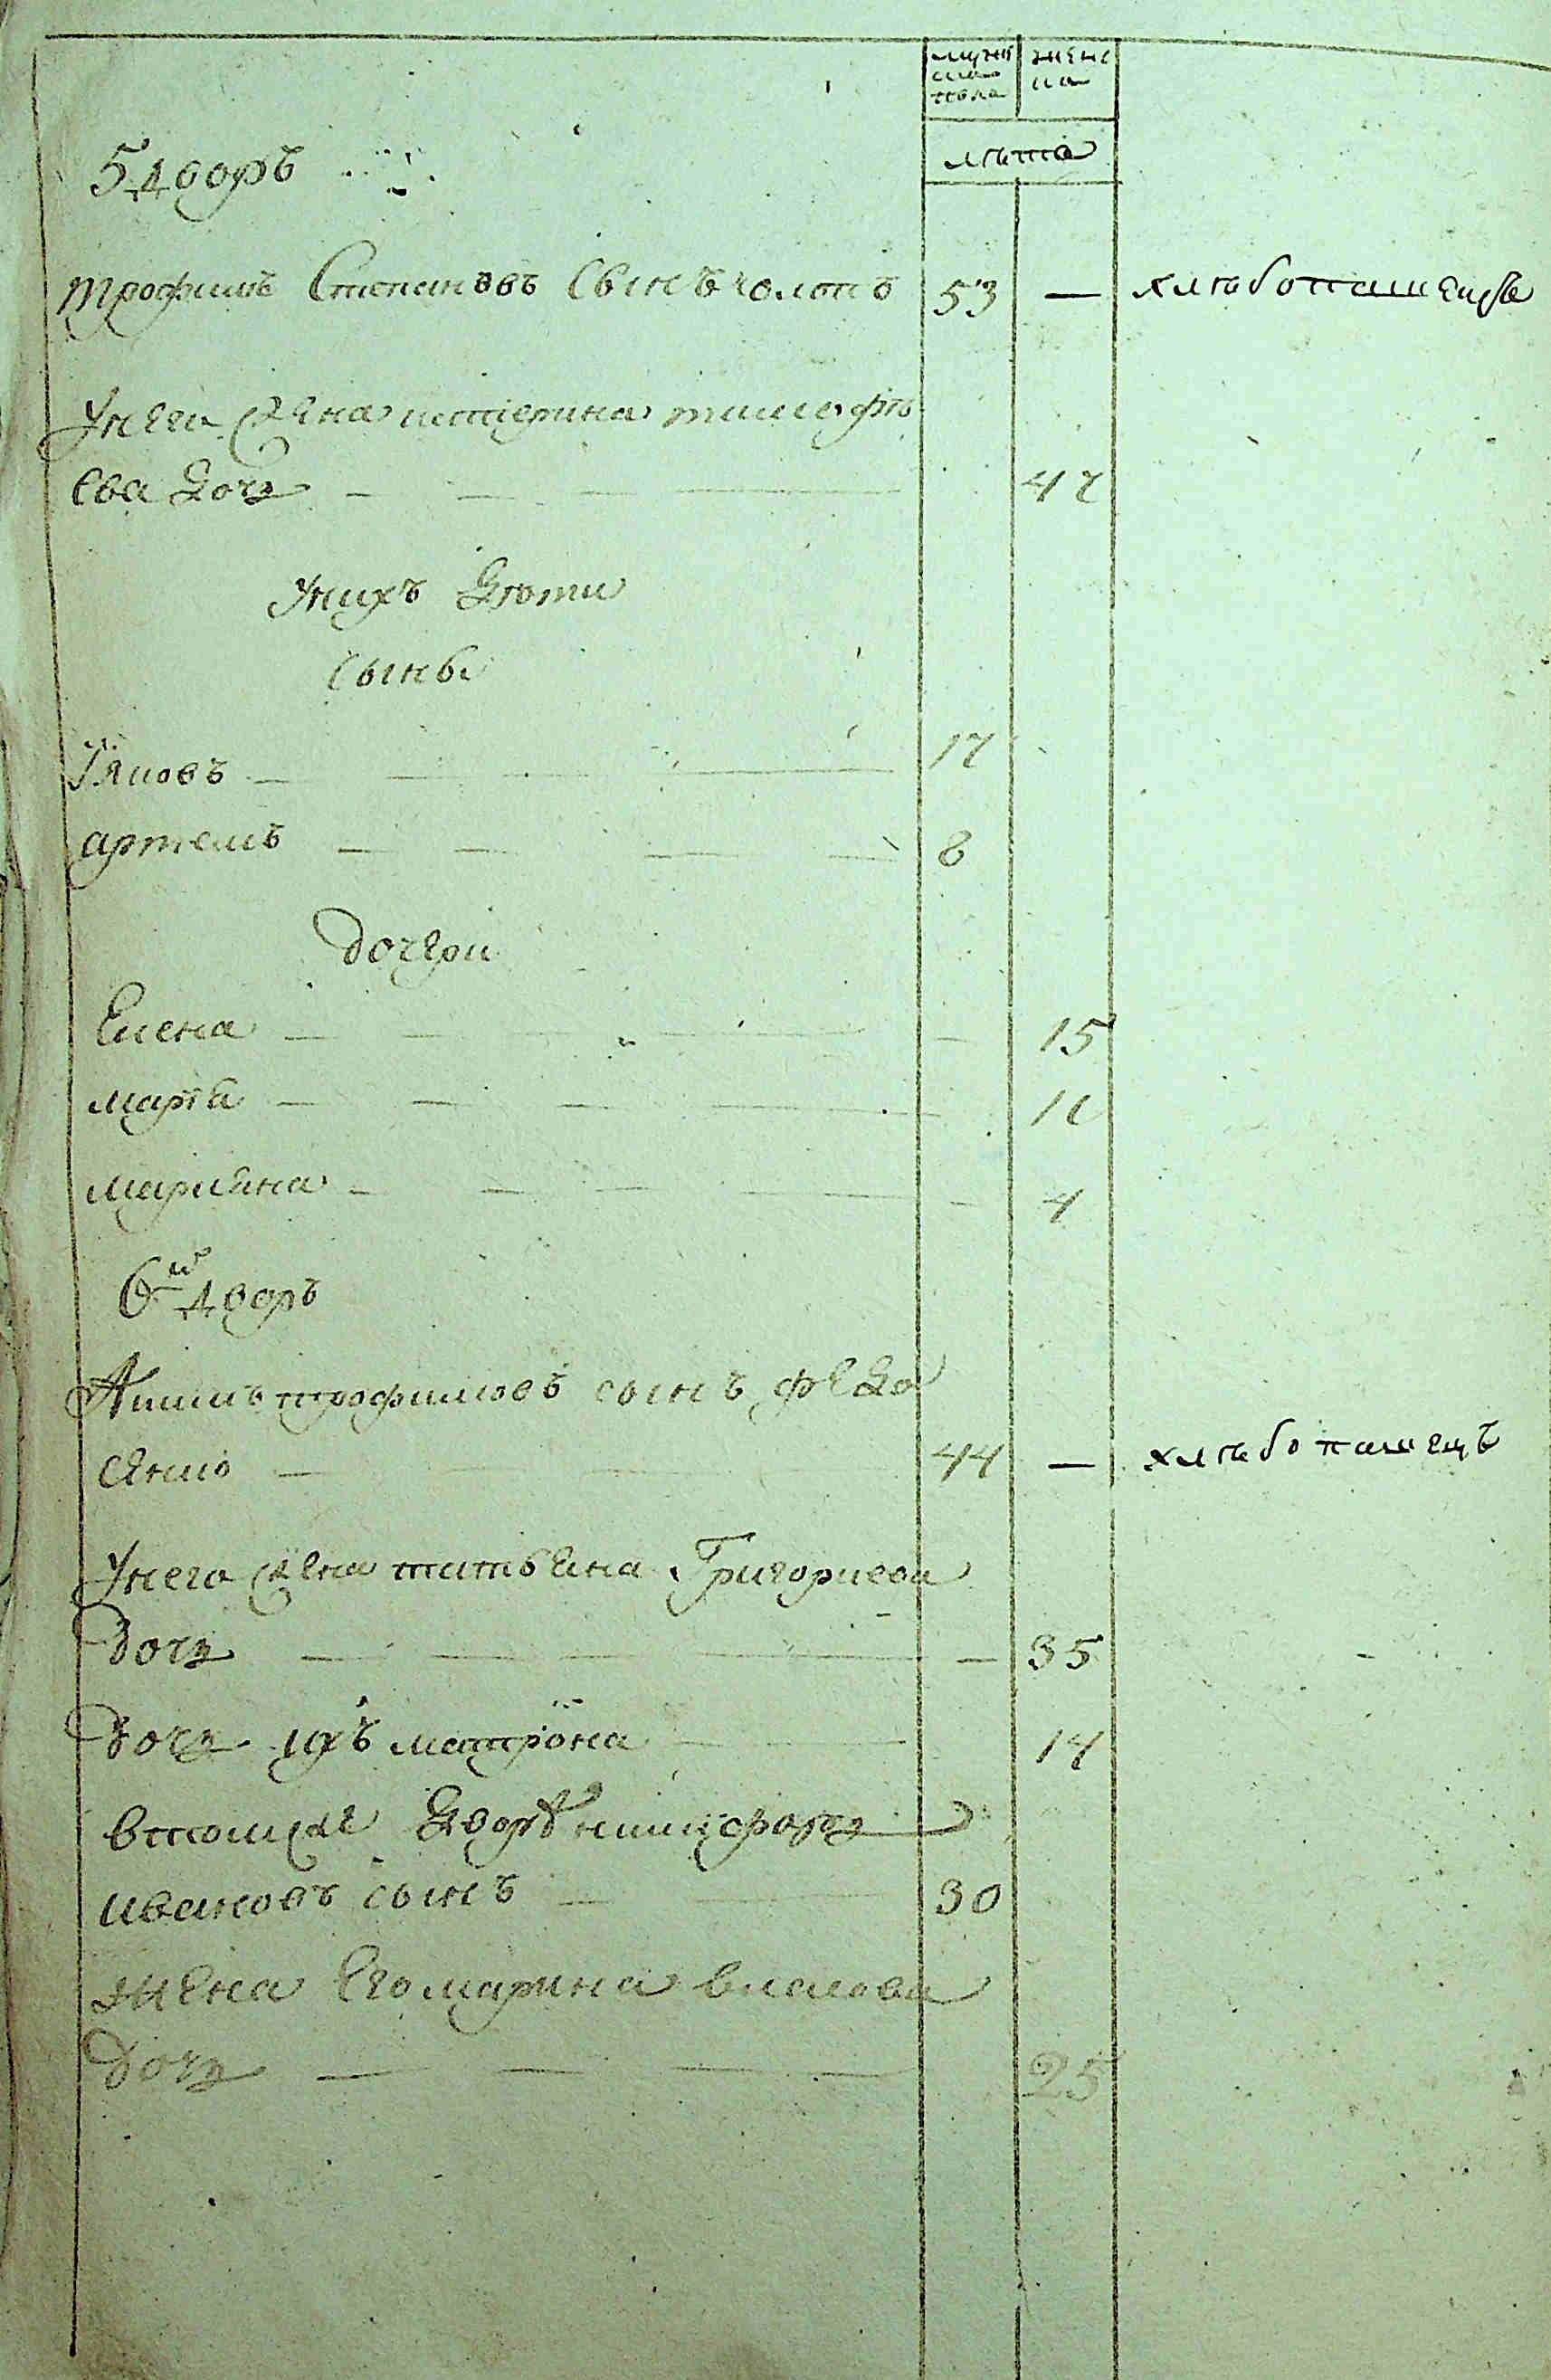 мужс женс
ка ка
пола
лѣта
5 дворъ
трофимъ Степановъ сынъ 53 — хлѣбопашецъ
Унего жена катерина тимофѣ
ева дочь 47
Унихъ дѣти
сыны
Яковъ 17
артемъ 8
дочери
Елена 15
марѳа 11
марияна 4
6й дворъ
Акимъ трофимовъ сынъ федо
сенко 44 — хлѣбопашецъ
Унего жена татьяна Григориева
дочь — 35
дочь ихъ матрона 14
втомже дворѣ никифоръ
ивановъ сынъ 30
жена Его марина власова
дочь 25